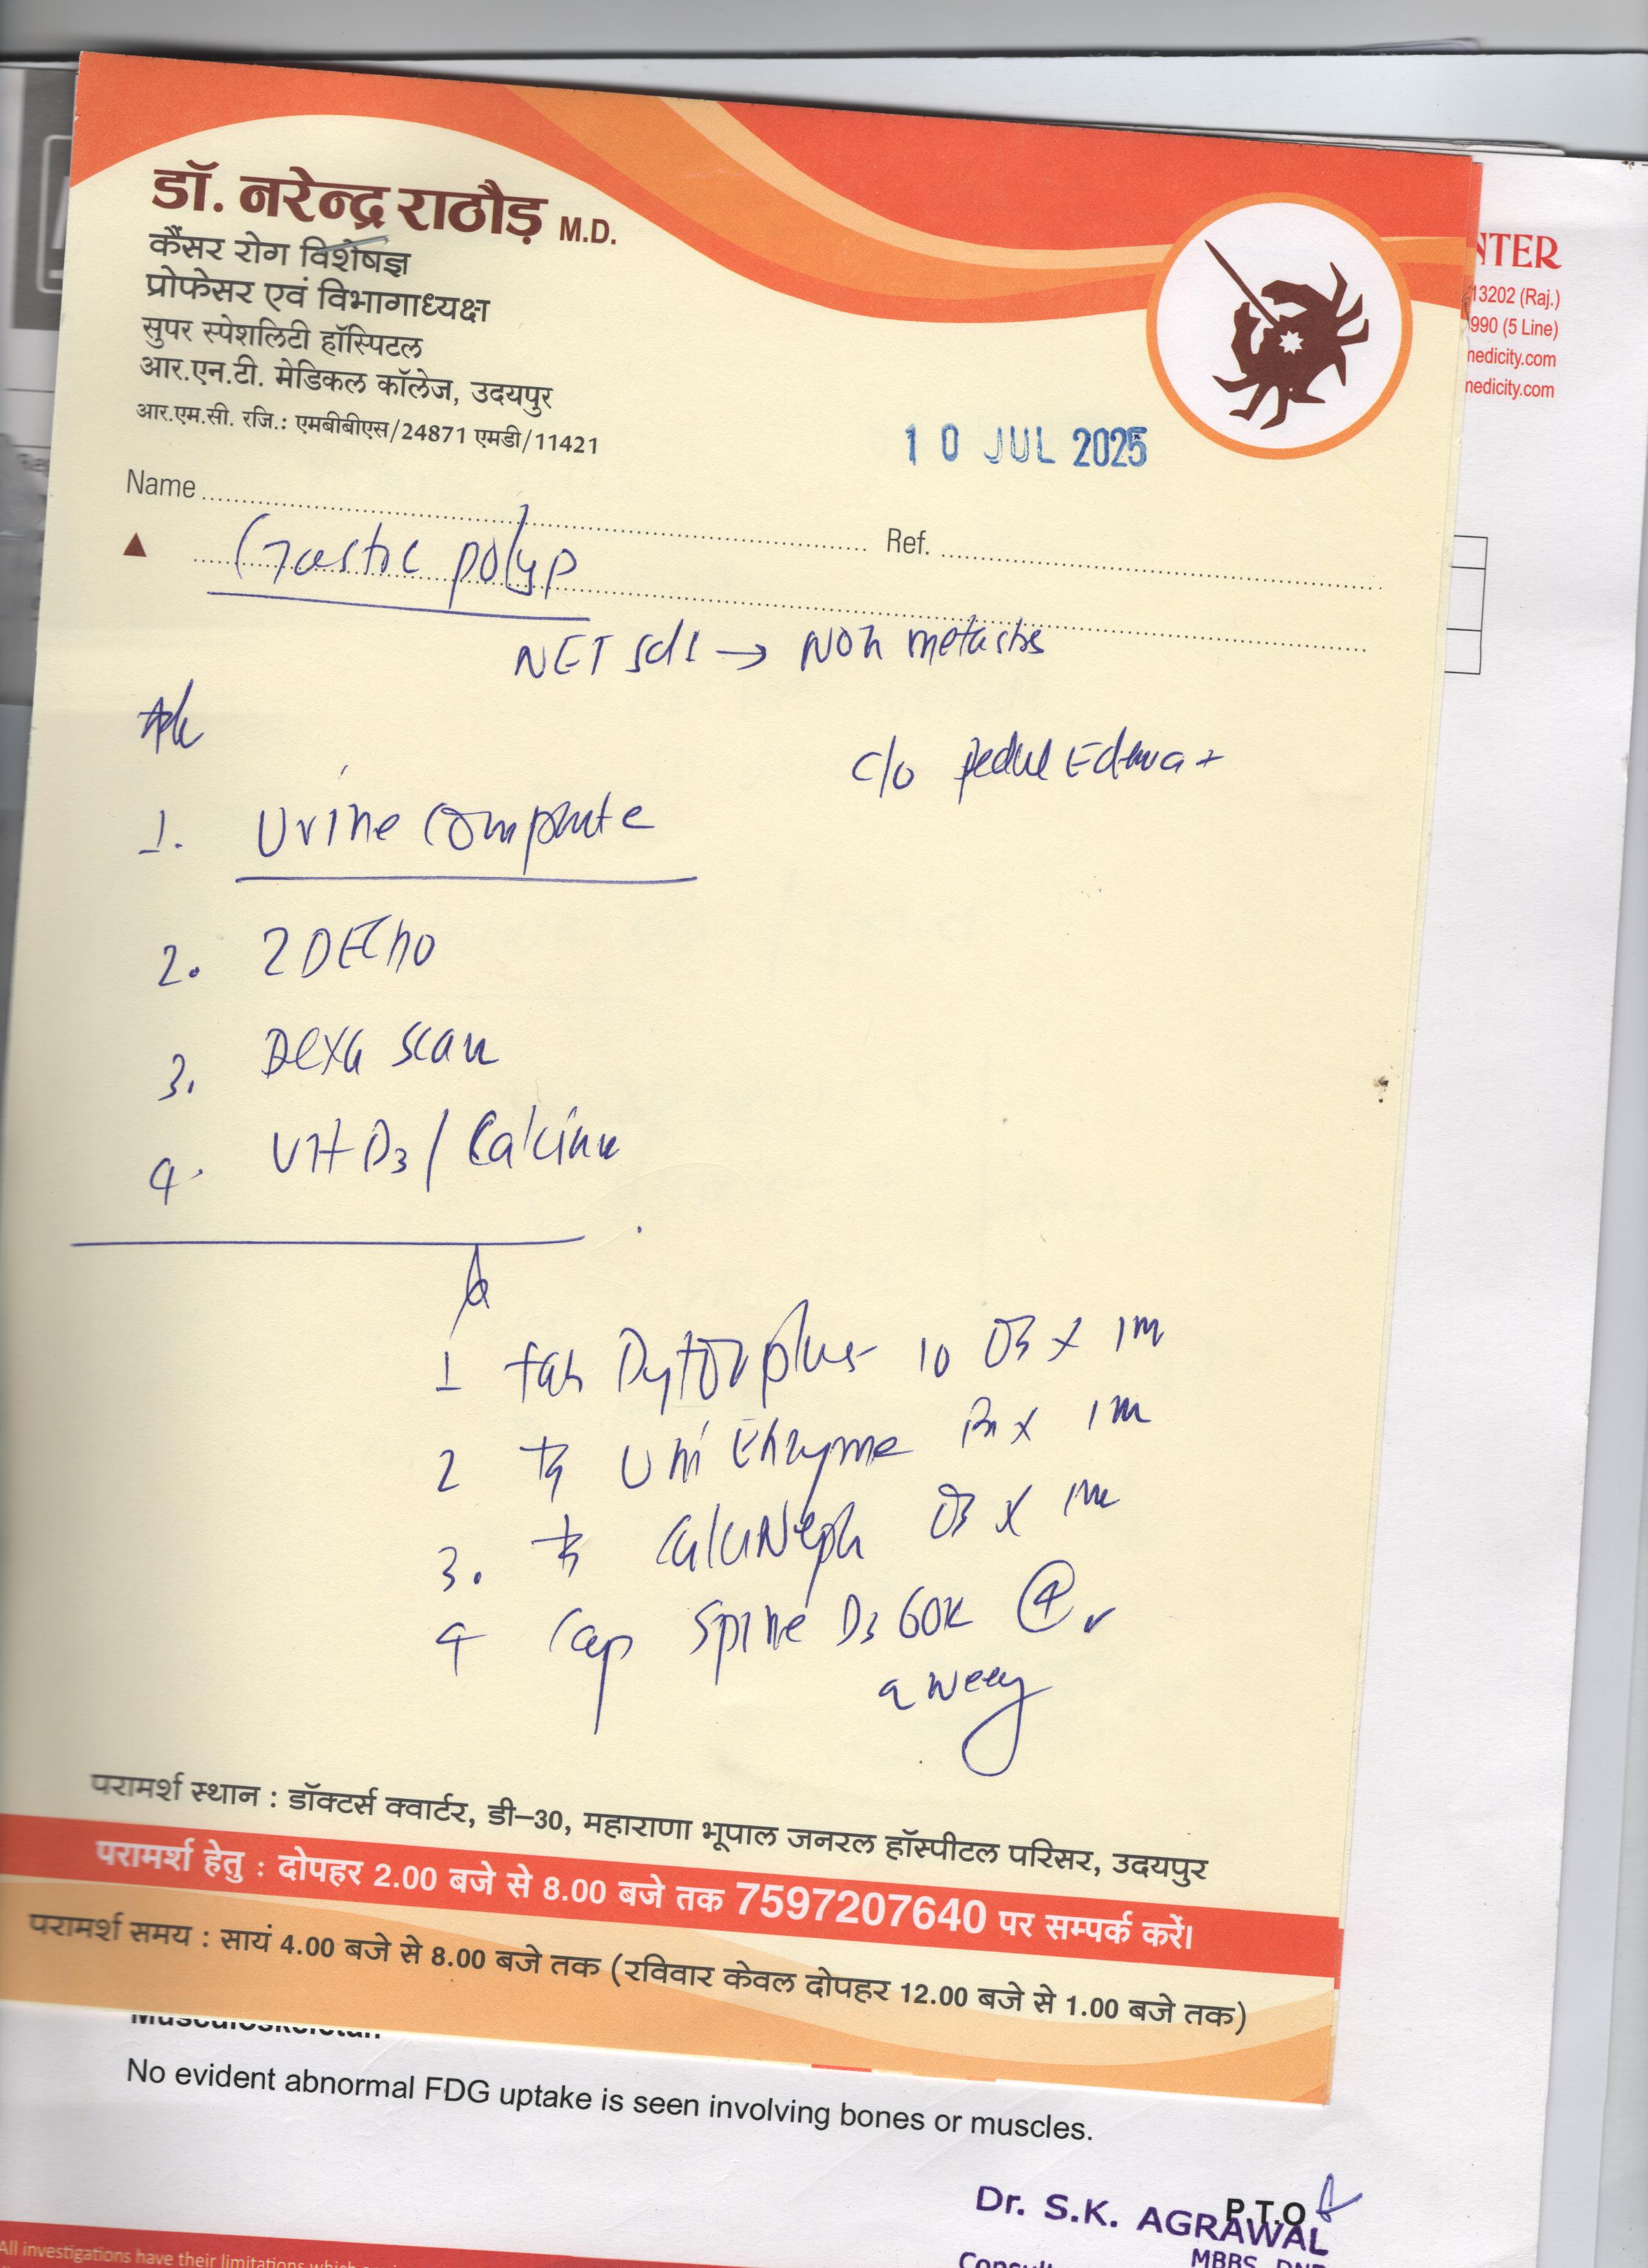 डॉ. नरेन्द्र राठौड़ M.D.
कैंसर रोग विशेषज्ञ
प्रोफेसर एवं विभागाध्यक्ष
सुपर स्पेशलिटी हॉस्पिटल
आर.एन.टी. मेडिकल कॉलेज, उदयपुर
आर.एम.सी. रजि.: एमबीबीएस/24871 एमडी/11421
NTER
13202 (Raj.)
990 (5 Line)
medicity.com
medicity.com
10 JUL 2025
Name
Ref.
Gastric polyp
NET → Non
C/O Edema +
1. Urine Complete
2. 2D Echo
3. Dexa scan
4. Vit D3 / Calcium
1 tab Dytor plus 10 OD x 1m
2 Uni Enzyme x 1m
3. OD x 1m
4 Cap Spine D3 60K
a week
परामर्श स्थान : डॉक्टर्स क्वार्टर, डी-30, महाराणा भूपाल जनरल हॉस्पीटल परिसर, उदयपुर
परामर्श हेतु : दोपहर 2.00 बजे से 8.00 बजे तक 7597207640 पर सम्पर्क करें।
परामर्श समय : सायं 4.00 बजे से 8.00 बजे तक (रविवार केवल दोपहर 12.00 बजे से 1.00 बजे तक)
No evident abnormal FDG uptake is seen involving bones or muscles.
P.T.O
Dr. S.K. AGRAWAL
MBBS, DNB
All investigations have their limitations which